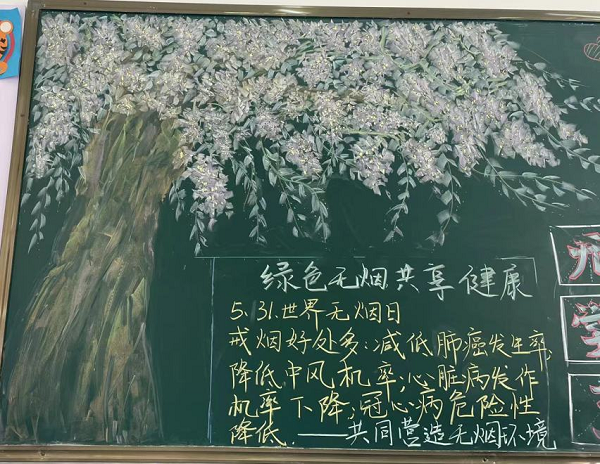 绿色无烟共享健康
5.31.世界无烟日
戒烟好处多:减低肺癌发生率,
降低中风机率;心脏病发作
机率下降;冠心病危险性
降低.——共同营造无烟环境